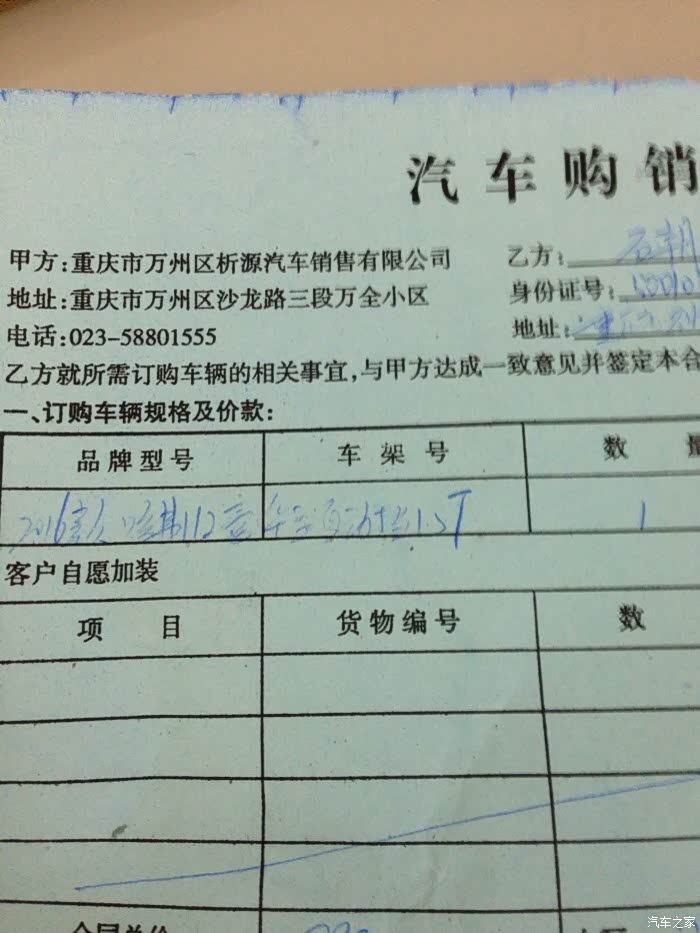 汽车购销
甲方:重庆市万州区析源汽车销售有限公司 乙方:
地址:重庆市万州区沙龙路三段万全小区 身份证号:
电话:023-58801555 地址:
乙方就所需订购车辆的相关事宜,与甲方达成一致意见并签定本合
一、订购车辆规格及价款:
品牌型号 车架号 数量
2016 1.5T 1
客户自愿加装
项目 货物编号 数
汽车之家